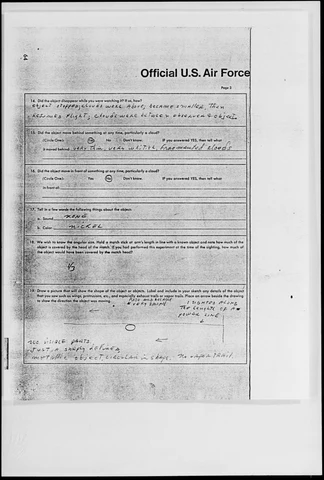 Official U.S. Air Force
Page 3
14. Did the object disappear while you were watching it? If so, how?
object stopped, clouds were above, became smaller, then
resumed flight, clouds were between observer & object.
15. Did the object move behind something at any time, particularly a cloud?
(Circle One): Yes No Don't know. IF you answered YES, then tell what
it moved behind: very thin, very whitish, fragmented clouds
16. Did the object move in front of something at any time, particularly a cloud?
(Circle One): Yes No Don't know. IF you answered YES, then tell what
in front of:
17. Tell in a few words the following things about the object:
a. Sound NONE
b. Color NICKEL
18. We wish to know the angular size. Hold a match stick at arm's length in line with a known object and note how much of
the object is covered by the head of the match. If you had performed this experiment at the time of the sighting, how much of
the object would have been covered by the match head?
19. Draw a picture that will show the shape of the object or objects. Label and include in your sketch any details of the object
that you saw such as wings, protrusions, etc., and especially exhaust trails or vapor trails. Place an arrow beside the drawing
to show the direction the object was moving.
I sighted along
the length of a
power line
no visible parts.
Just a sharply defined,
metallic object, circular in shape. No vapor trail.